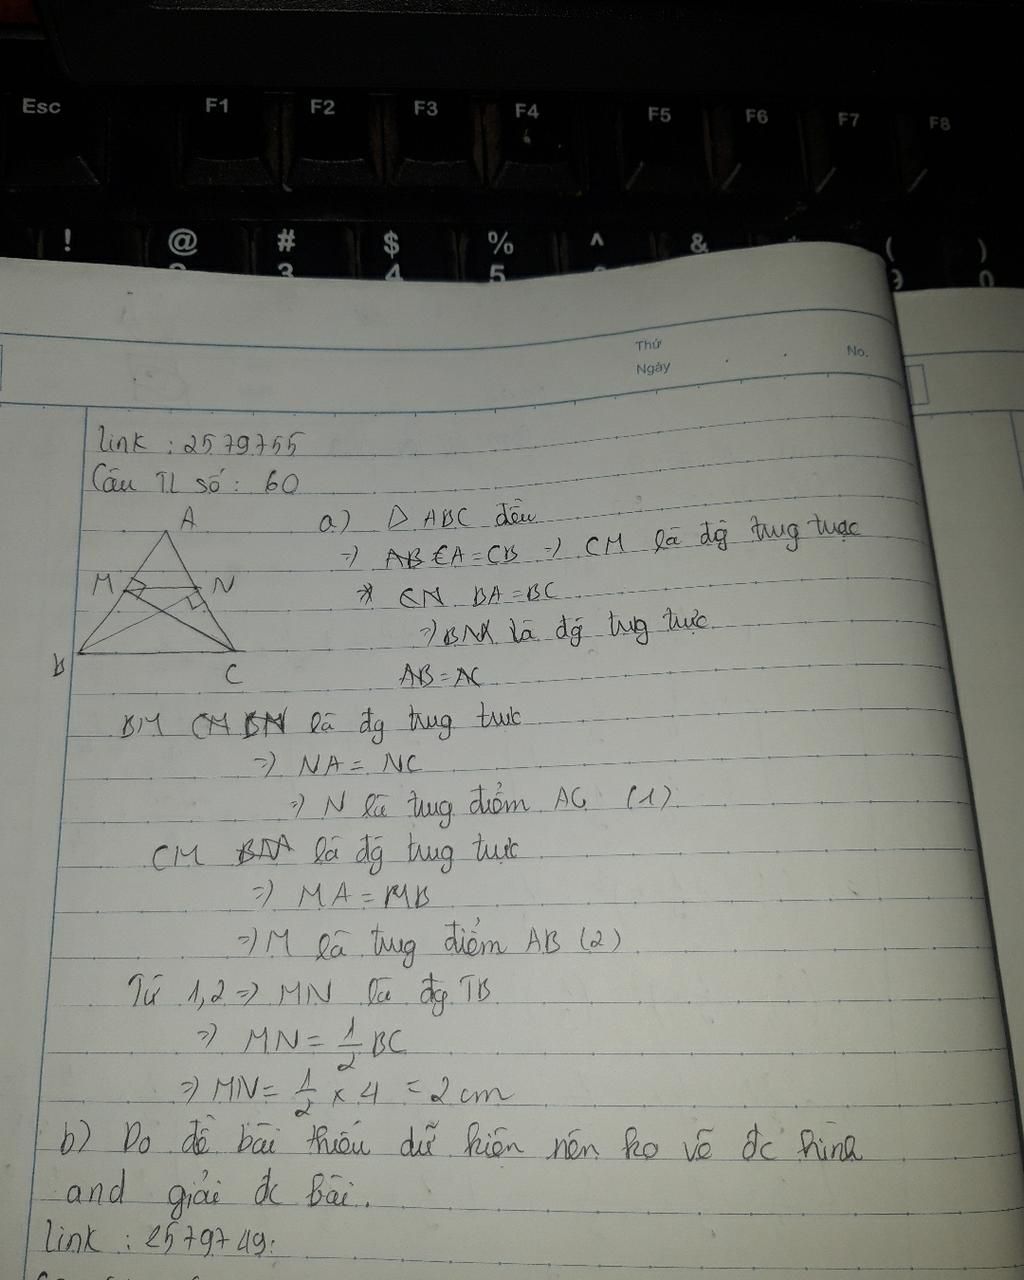 Esc F1 F2 F3 F4 F5 F6 F7 F8
! @ # $ % ^ & * ( )
3 4 5 0
Thứ
Ngày
No.
link : 2579755
Câu TL số : 60
A
M
N
B
C
a) Δ ABC đều
=> CA = CB => CM là đg trug trực
* BA = BC
=> BN là đg trug trực
AB = AC
BN là đg trug trực
=> NA = NC
=> N là trug điểm AC (1)
CM là đg trug trực
=> MA = MB
=> M là trug điểm AB (2)
Từ 1,2 => MN là đg TB
=> MN = 1/2 BC
=> MN = 1/2 x 4 = 2 cm
b) Do đề bài thiếu dữ kiện nên ko vẽ đc hình
and giải đc bài.
link : 2579749.